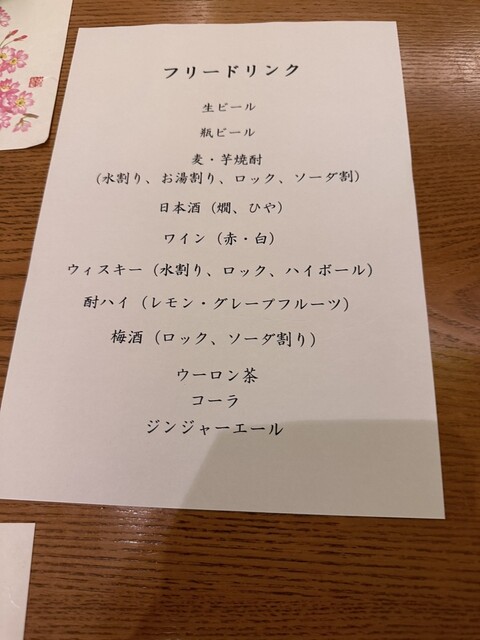 フリードリンク
生ビール
瓶ビール
麦・芋焼酎
(水割り、お湯割り、ロック、ソーダ割)
日本酒（燗、ひや）
ワイン（赤・白）
ウィスキー（水割り、ロック、ハイボール）
酎ハイ（レモン・グレープフルーツ）
梅酒（ロック、ソーダ割り）
ウーロン茶
コーラ
ジンジャーエール